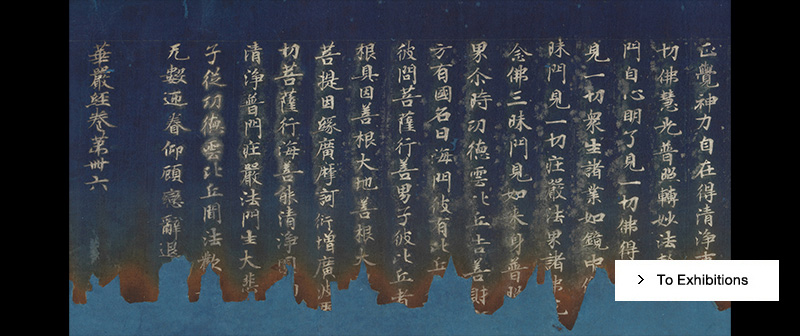 正覺神力自在得清淨
切佛慧光普照轉妙法
門自心明了見一切佛得
見一切衆生諸業如鏡中
昧門見一切莊嚴法界諸
念佛三昧門見如來身普照
果尒時功德雲比丘告善財
方有國名曰海門彼有比丘
彼問菩薩行善男子彼比丘者
根具因善根大地善根大
菩提因緣廣摩訶衍增廣波
切菩薩行海善能清淨
清淨普門莊嚴法門生大悲
子從功德雲比丘聞法歡
无數迊眷仰顧戀辭退
華嚴經卷第卌六
To Exhibitions